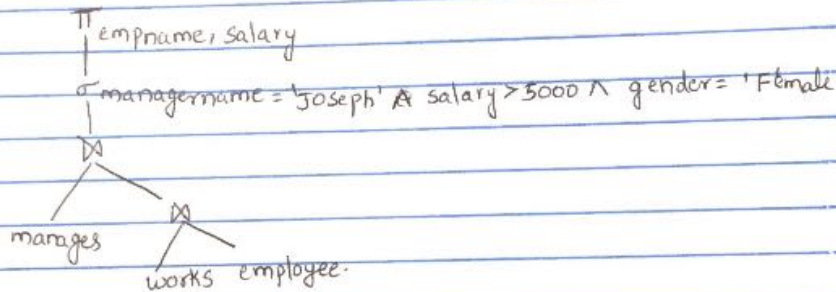 π empname, salary
σ managername = 'Joseph' ∧ salary > 5000 ∧ gender = 'Female
⋈
⋈
manages
works employee.